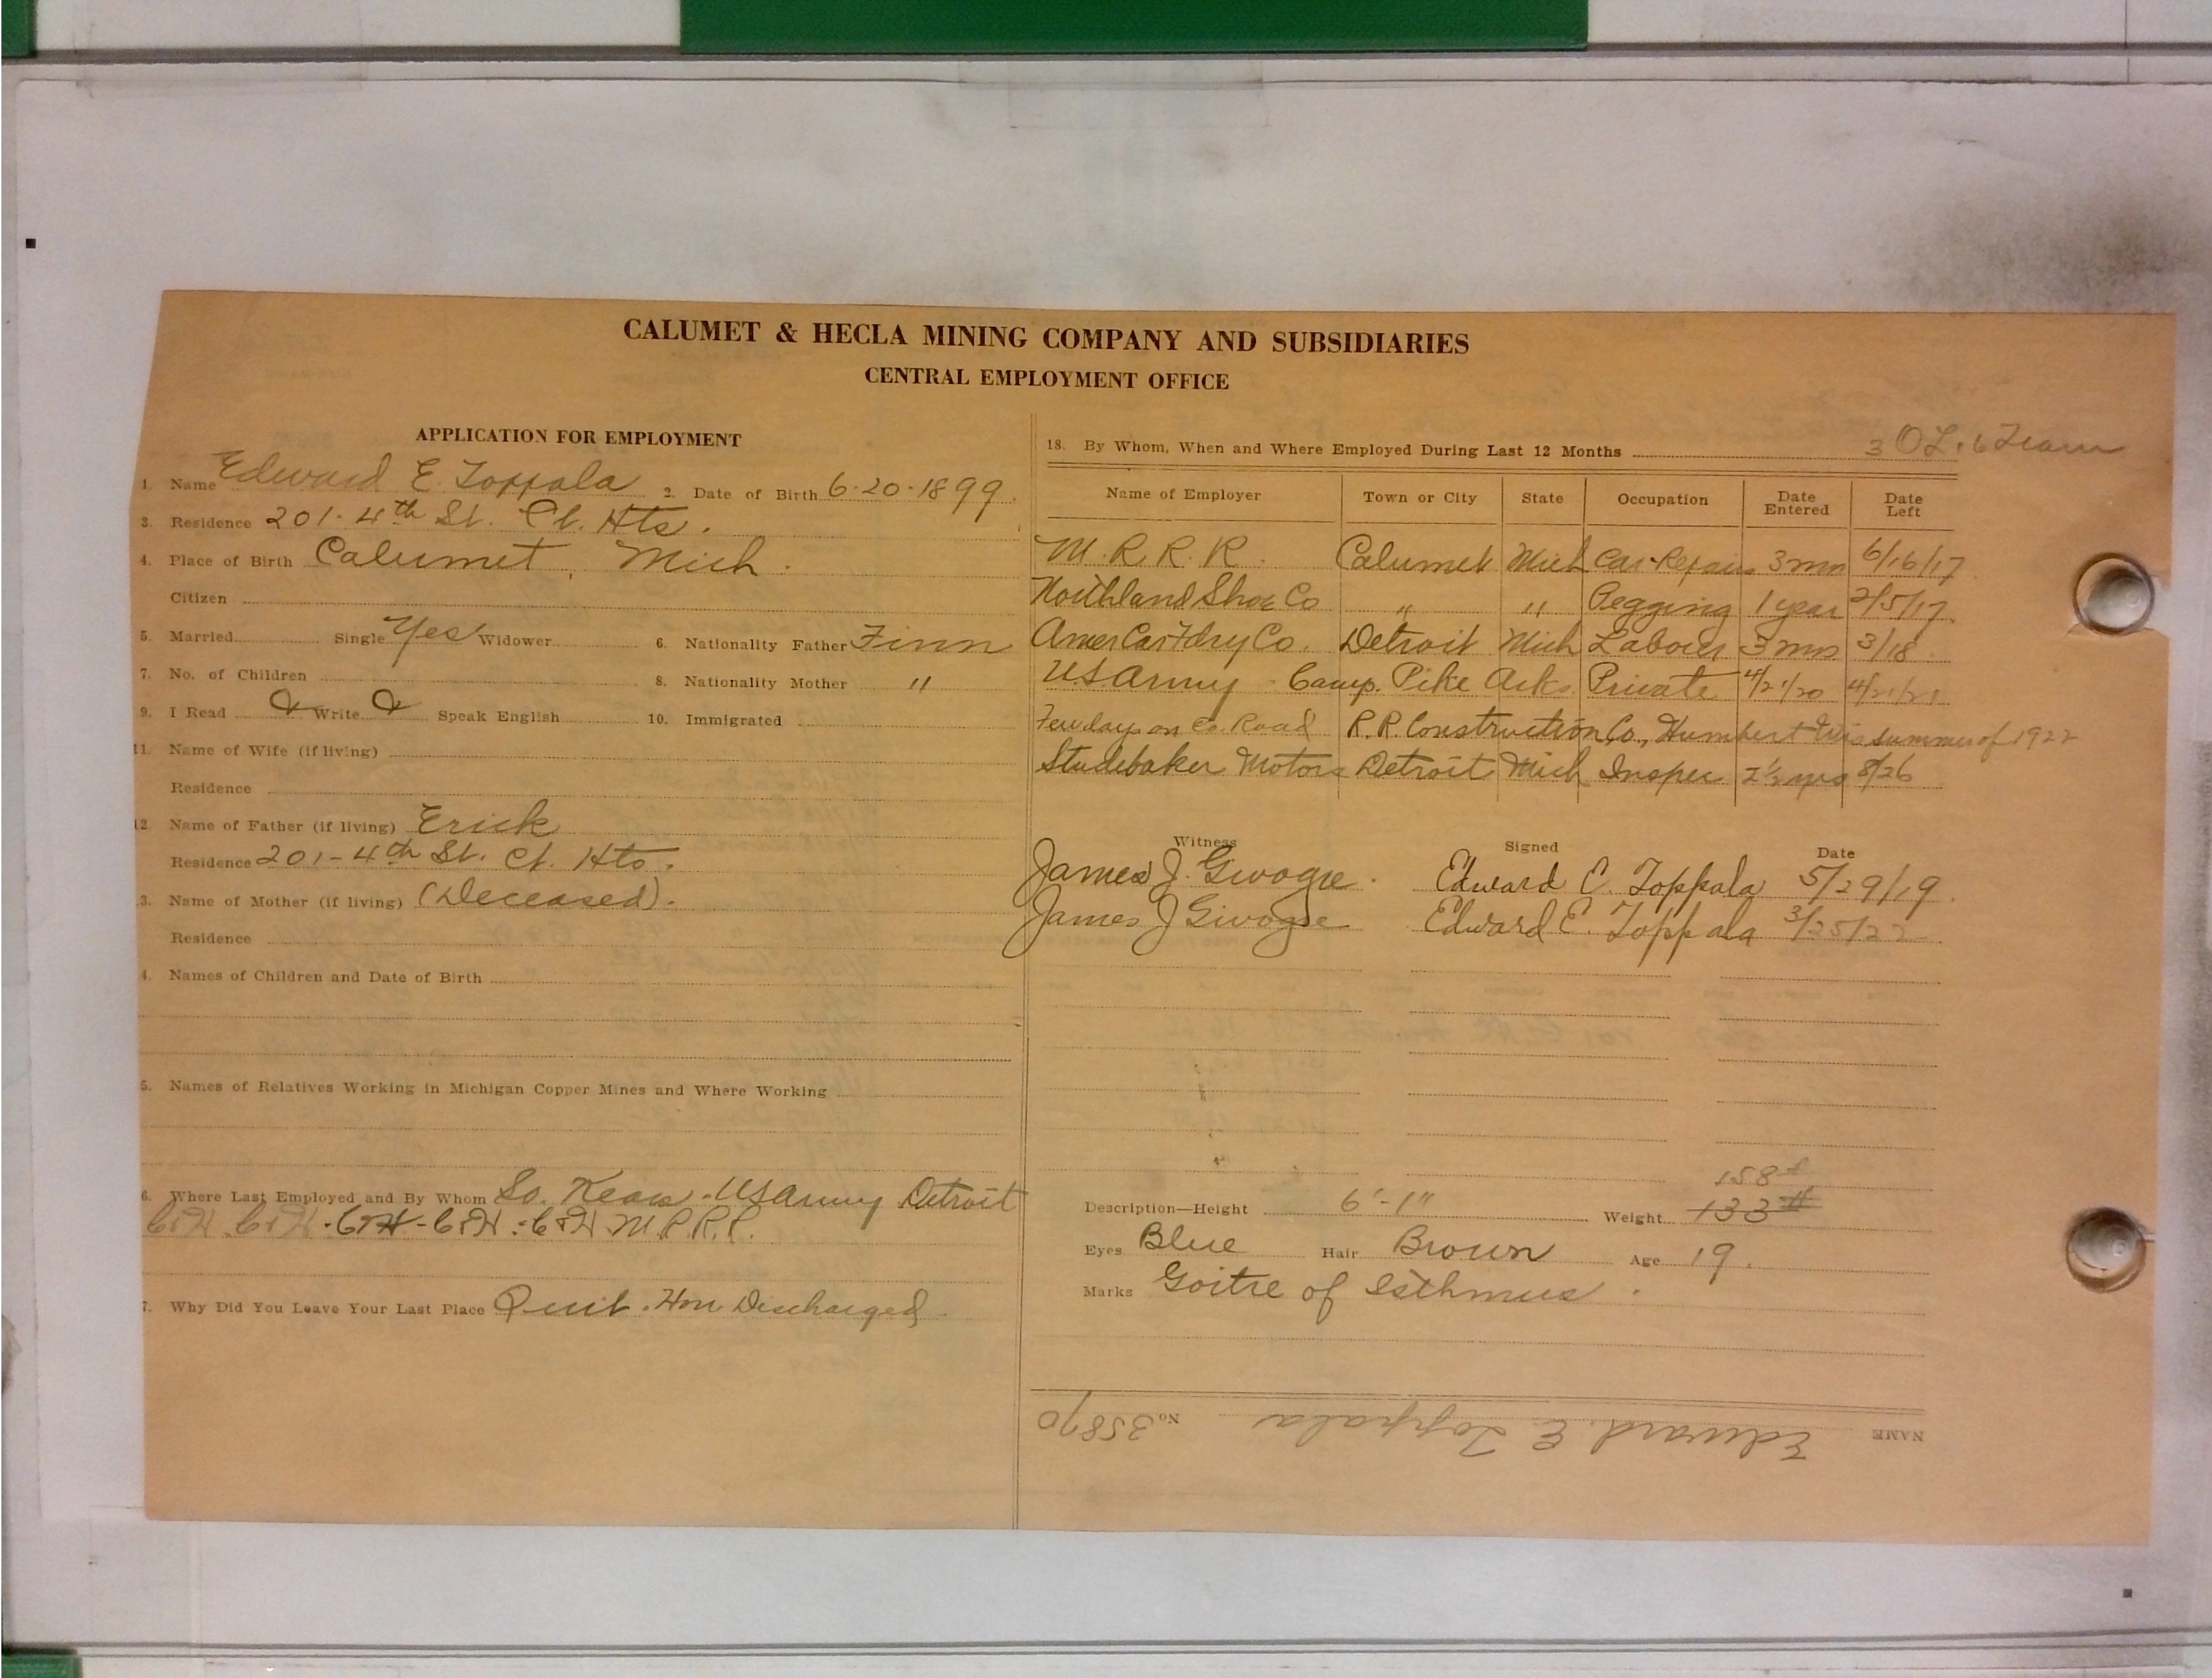 CALUMET & HECLA MINING COMPANY AND SUBSIDIARIES
CENTRAL EMPLOYMENT OFFICE
APPLICATION FOR EMPLOYMENT
1. Name Edward E. Toppala 2. Date of Birth 6-20-1899.
3. Residence 201-4th St. Cl. Hts.
4. Place of Birth Calumet, Mich.
Citizen
5. Married Single Yes Widower 6. Nationality Father Finn
7. No. of Children 8. Nationality Mother "
9. I Read & Write & Speak English 10. Immigrated
11. Name of Wife (if living)
Residence
12. Name of Father (if living) Erick
Residence 201-4th St. Cl. Hts.
3. Name of Mother (if living) (Deceased).
Residence
4. Names of Children and Date of Birth
5. Names of Relatives Working in Michigan Copper Mines and Where Working
6. Where Last Employed and By Whom So. Kears. - US Army Detroit
C&H. C&H. C&H - C&H. - C&H. M.R.R.R.
7. Why Did You Leave Your Last Place Quit. Hon Discharged
18. By Whom, When and Where Employed During Last 12 Months 3 OL.
Name of Employer Town or City State Occupation Date Entered Date Left
M.R.R.R. Calumet Mich Car Repairs 3 mn 6/16/17
Northland Shoe Co " " Pegging 1 year 2/5/17.
Amer Car Fdry Co. Detroit Mich Laborer 3 mns 3/18
US Army - Camp. Pike Arks Private 4/21/20 4/21/21
Few days on Co. Road R.R. Construction Co., Humbert Wis summer of 1922
Studebaker Motors Detroit Mich Inspec 2½ yrs 8/26
Witness Signed Date
James J. Edward E. Toppala 5/29/19.
James J Edward E. Toppala 3/25/22
158#
Description—Height 6'-1" Weight 133#
Eyes Blue Hair Brown Age 19.
Marks Goitre of Isthmus.
NAME Edward. E. Toppala No. 35870